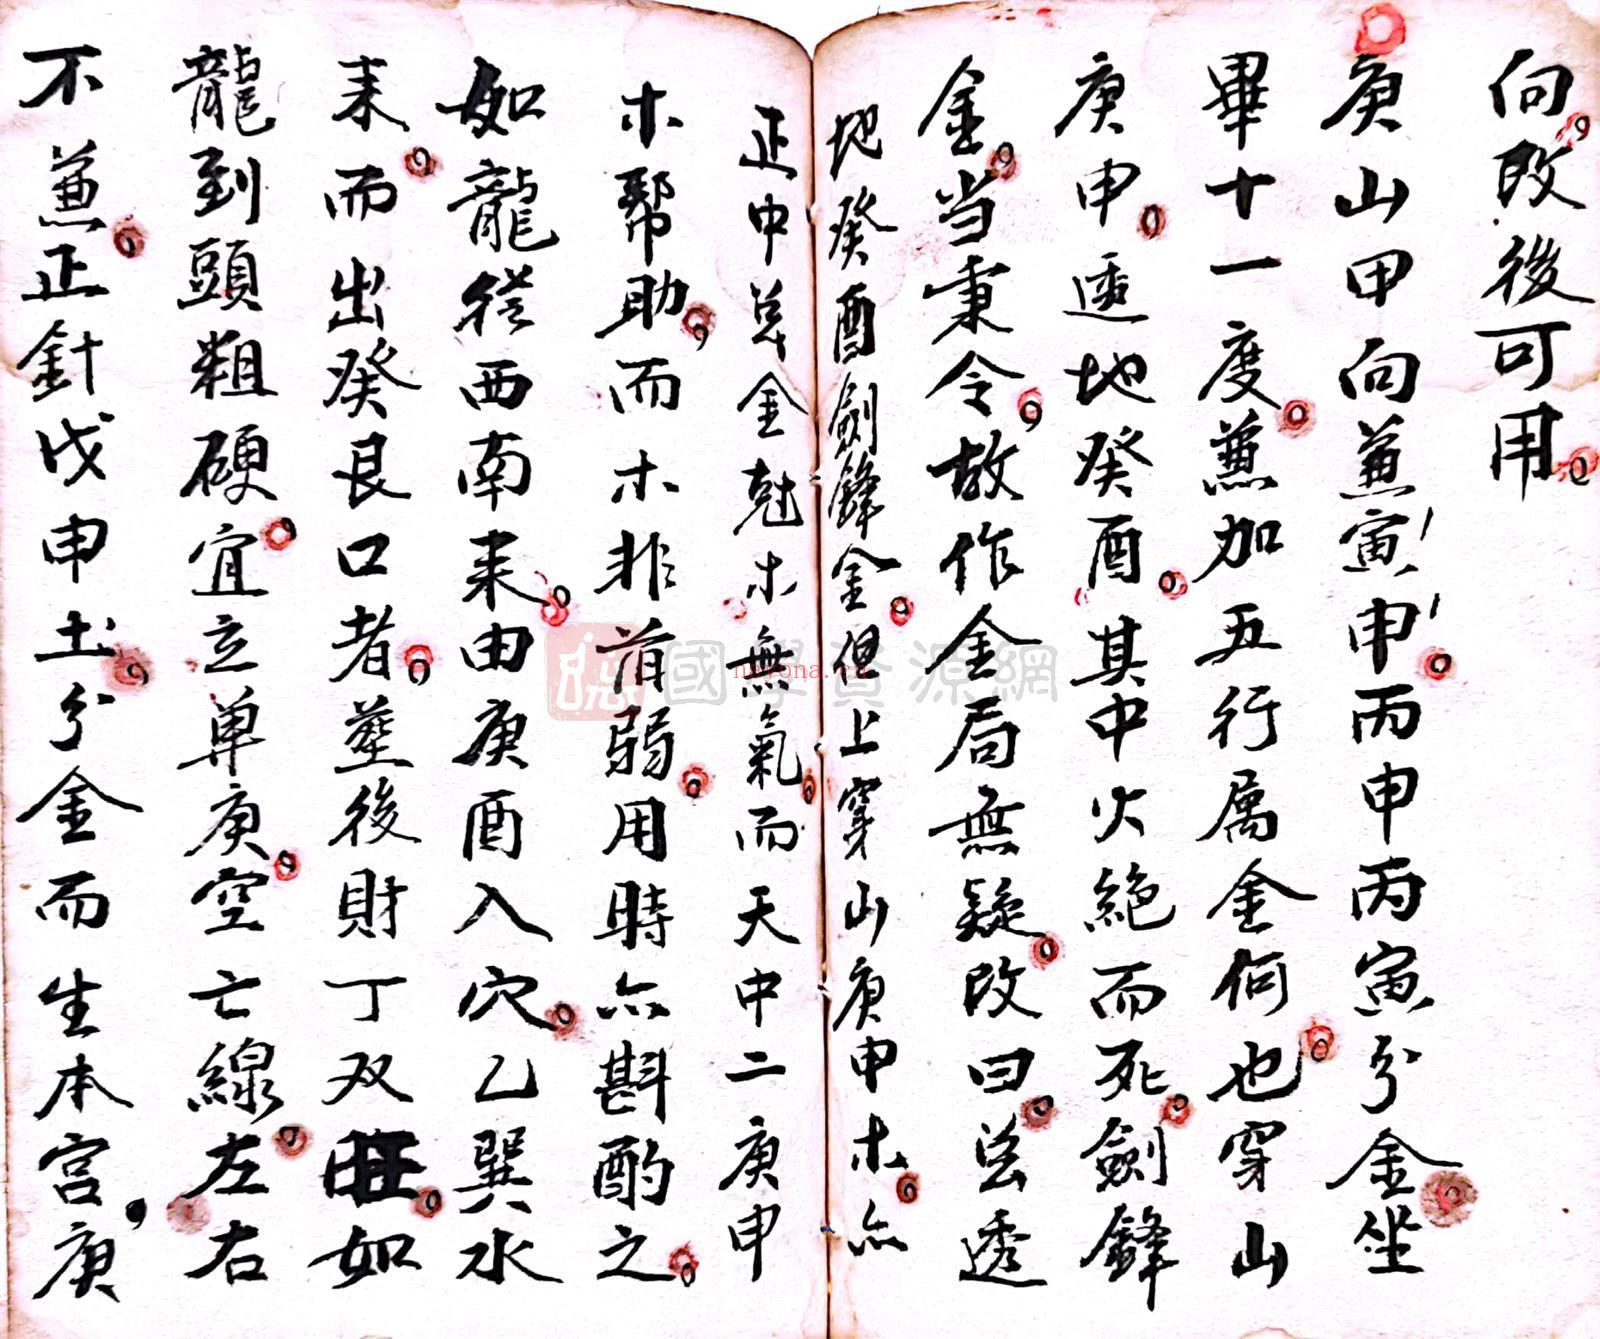 向改後可用
庚山甲向兼寅申丙申丙寅分金坐
畢十一度兼加五行属金何也穿山
庚申透地癸酉其中火絶而死劍鋒
金当秉令故作金局無疑改曰盆透
地癸酉劍鋒金但上穿山庚申木亦
延申盆金尅木無氣而天中二庚申
木幇助而木非首弱用時亦斟酌之
如龍從西南来由庚酉入穴乙巽水
来而出癸艮口者塟後財丁双旺如
龍到頭粗硬宜立单庚空亡線左右
不兼正針戊申土分金而生本宮庚
國學資源網
nayona.cn